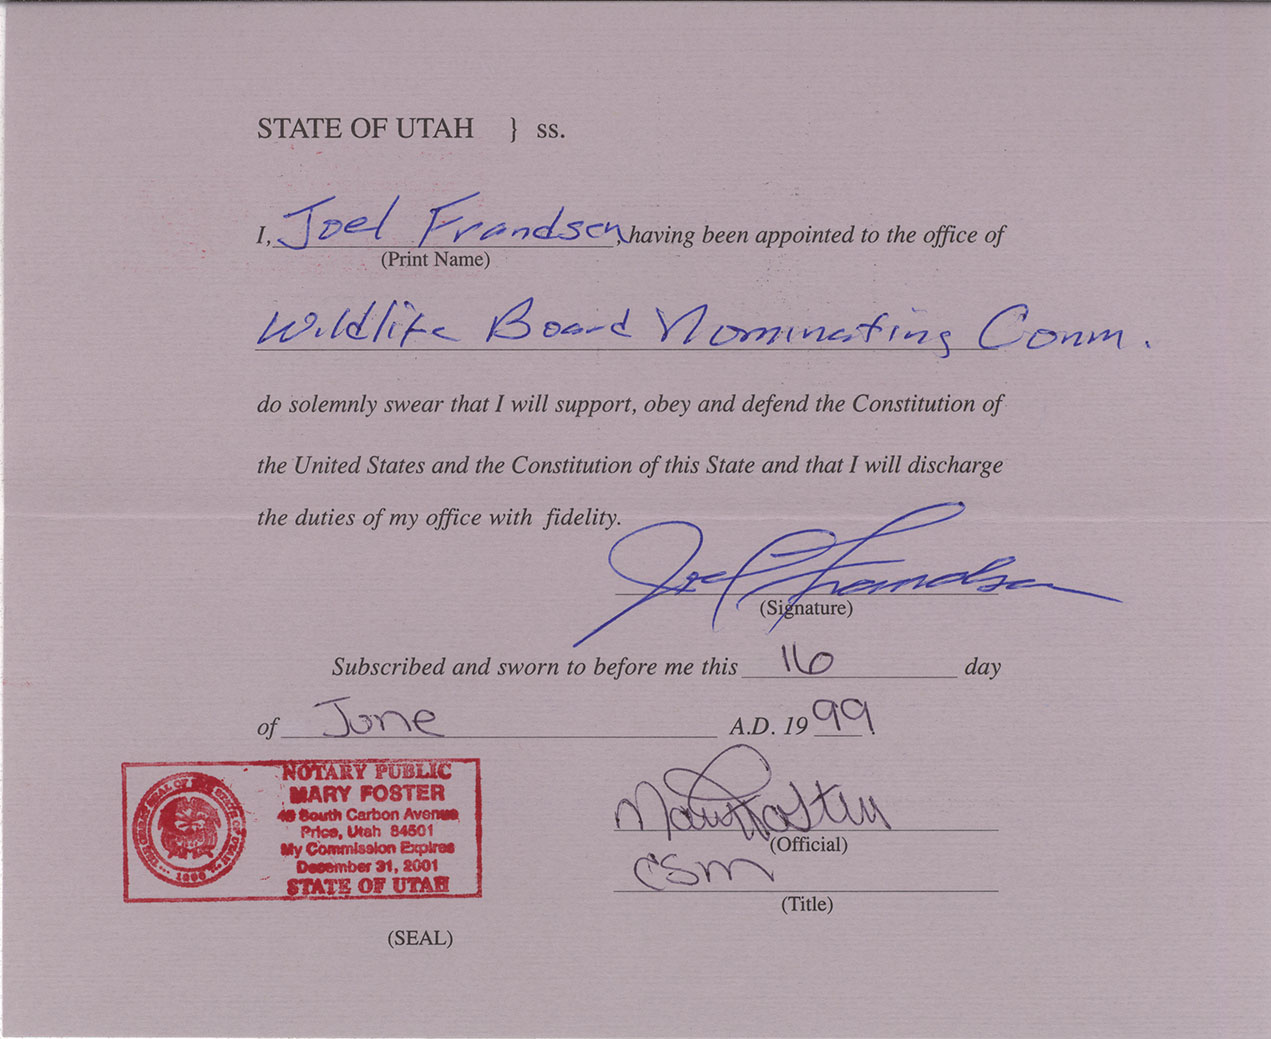 STATE OF UTAH } ss.
I, Joel Frandsen, having been appointed to the office of
(Print Name)
Wildlife Board Nominating Comm.
do solemnly swear that I will support, obey and defend the Constitution of
the United States and the Constitution of this State and that I will discharge
the duties of my office with fidelity.
Joel Frandsen
(Signature)
Subscribed and sworn to before me this 16 day
of June A.D. 1999.
NOTARY PUBLIC
MARY FOSTER
South Carbon Avenue
Price, Utah 84501
My Commission Expires
December 31, 2001
STATE OF UTAH
THE GREAT SEAL OF THE STATE OF UTAH
1896
Mary Foster
(Official)
CSM
(Title)
(SEAL)